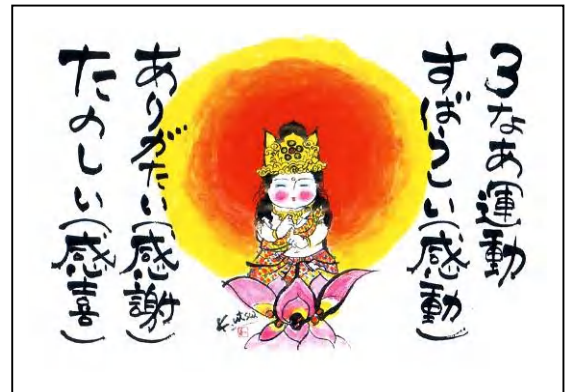 3なあ運動
すばらしい(感動)
ありがたい(感謝)
たのしい(感喜)